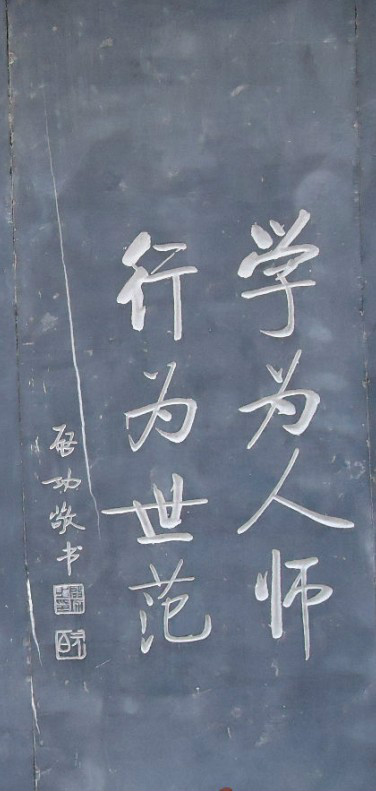 学为人师
行为世范
启功敬书